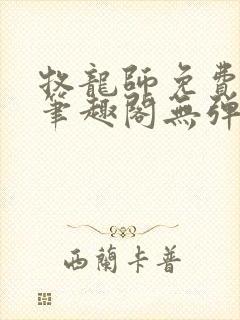 牧龍師免費
筆趣閣無彈
西蘭卡普